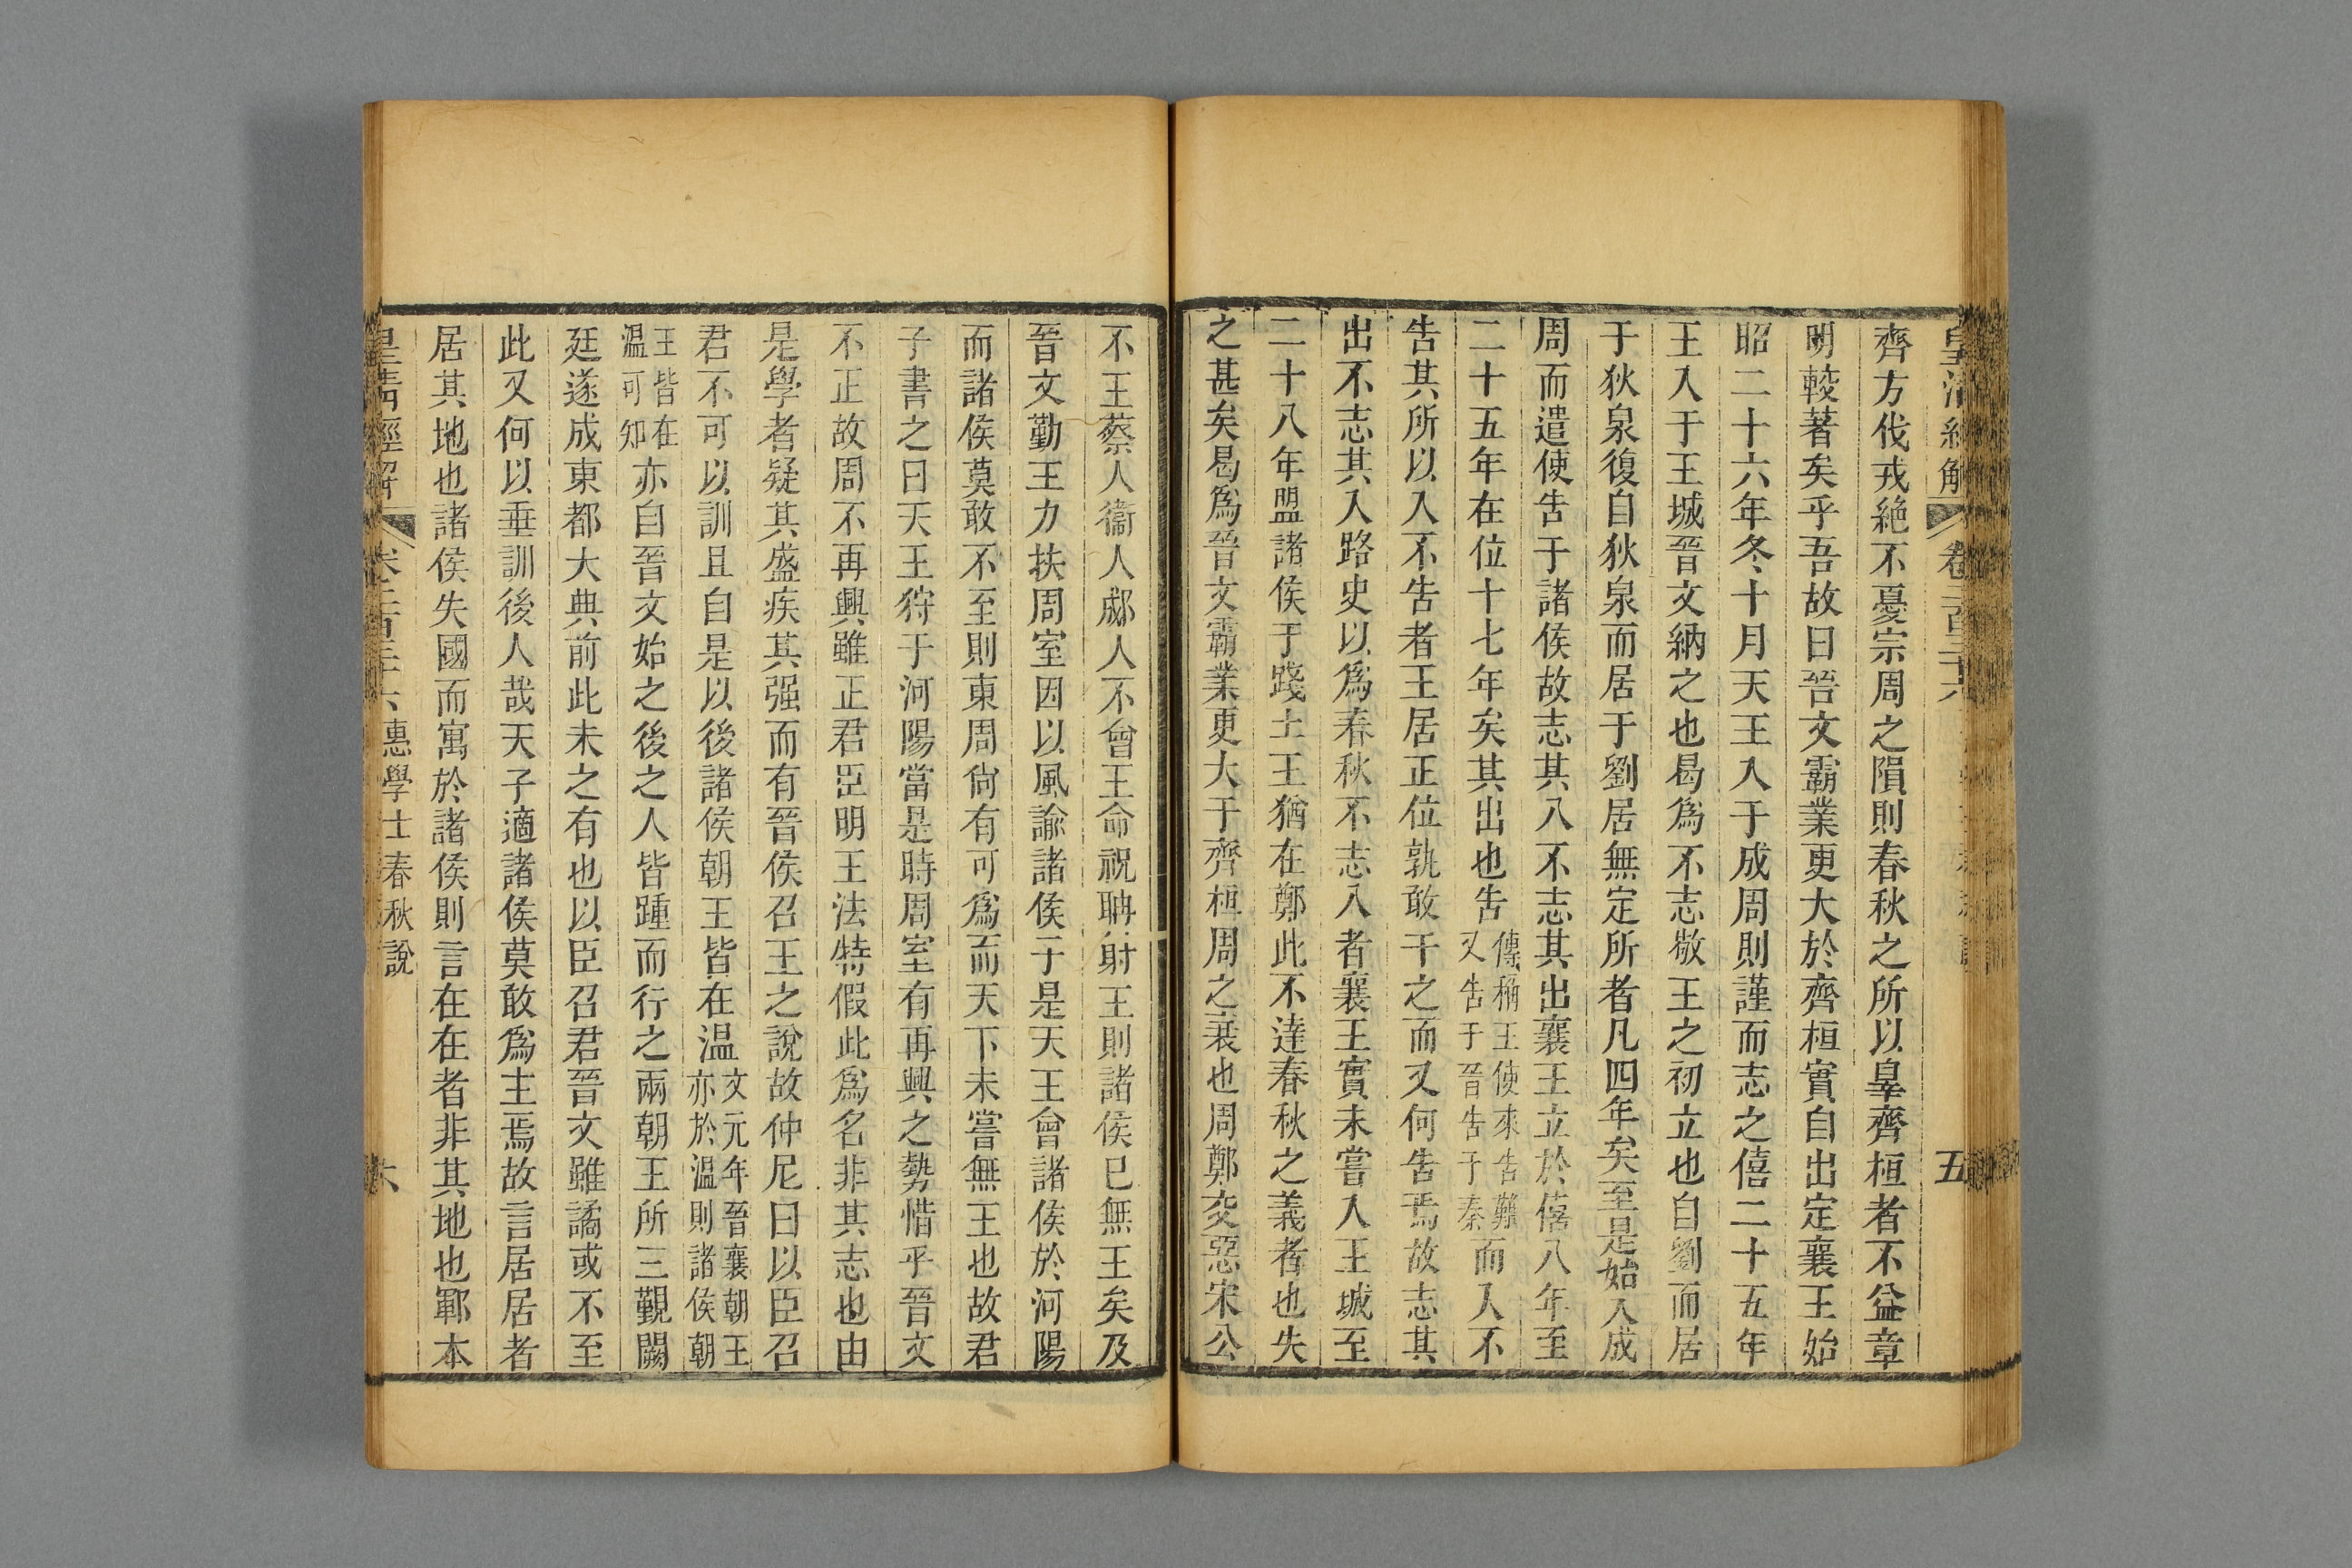 皇清經解 卷二百三十六 五
齊方伐戎絶不憂宗周之隕則春秋之所以辠齊桓者不益章
明較著矣乎吾故曰晉文霸業更大於齊桓實自出定襄王始
昭二十六年冬十月天王入于成周則謹而志之僖二十五年
王入于王城晉文納之也曷爲不志敬王之初立也自劉而居
于狄泉復自狄泉而居于劉居無定所者凡四年矣至是始入成
周而遣使告于諸侯故志其入不志其出襄王立於僖八年至
二十五年在位十七年矣其出也告傳稱王使來告難又告于晉告于秦而入不
告其所以入不告者王居正位孰敢干之而又何告焉故志其
出不志其入路史以爲春秋不志入者襄王實未嘗入王城至
二十八年盟諸侯于踐土王猶在鄭此不達春秋之義者也失
之甚矣曷爲晉文霸業更大于齊桓周之衰也周鄭交惡宋公
不王蔡人衞人郕人不會王命祝聃射王則諸侯已無王矣及
晉文勤王力扶周室因以風諭諸侯于是天王會諸侯於河陽
而諸侯莫敢不至則東周尚有可爲而天下未嘗無王也故君
子書之曰天王狩于河陽當是時周室有再興之勢惜乎晉文
不正故周不再興雖正君臣明王法特假此爲名非其志也由
是學者疑其盛疾其强而有晉侯召王之說故仲尼曰以臣召
君不可以訓且自是以後諸侯朝王皆在温文元年晉襄朝王亦於温則諸侯朝
王皆在温可知亦自晉文始之後之人皆踵而行之兩朝王所三覲闕
廷遂成東都大典前此未之有也以臣召君晉文雖譎或不至
此又何以垂訓後人哉天子適諸侯莫敢爲主焉故言居居者
居其地也諸侯失國而寓於諸侯則言在在者非其地也鄆本
皇清經解 卷二百三十六 惠學士春秋說 六